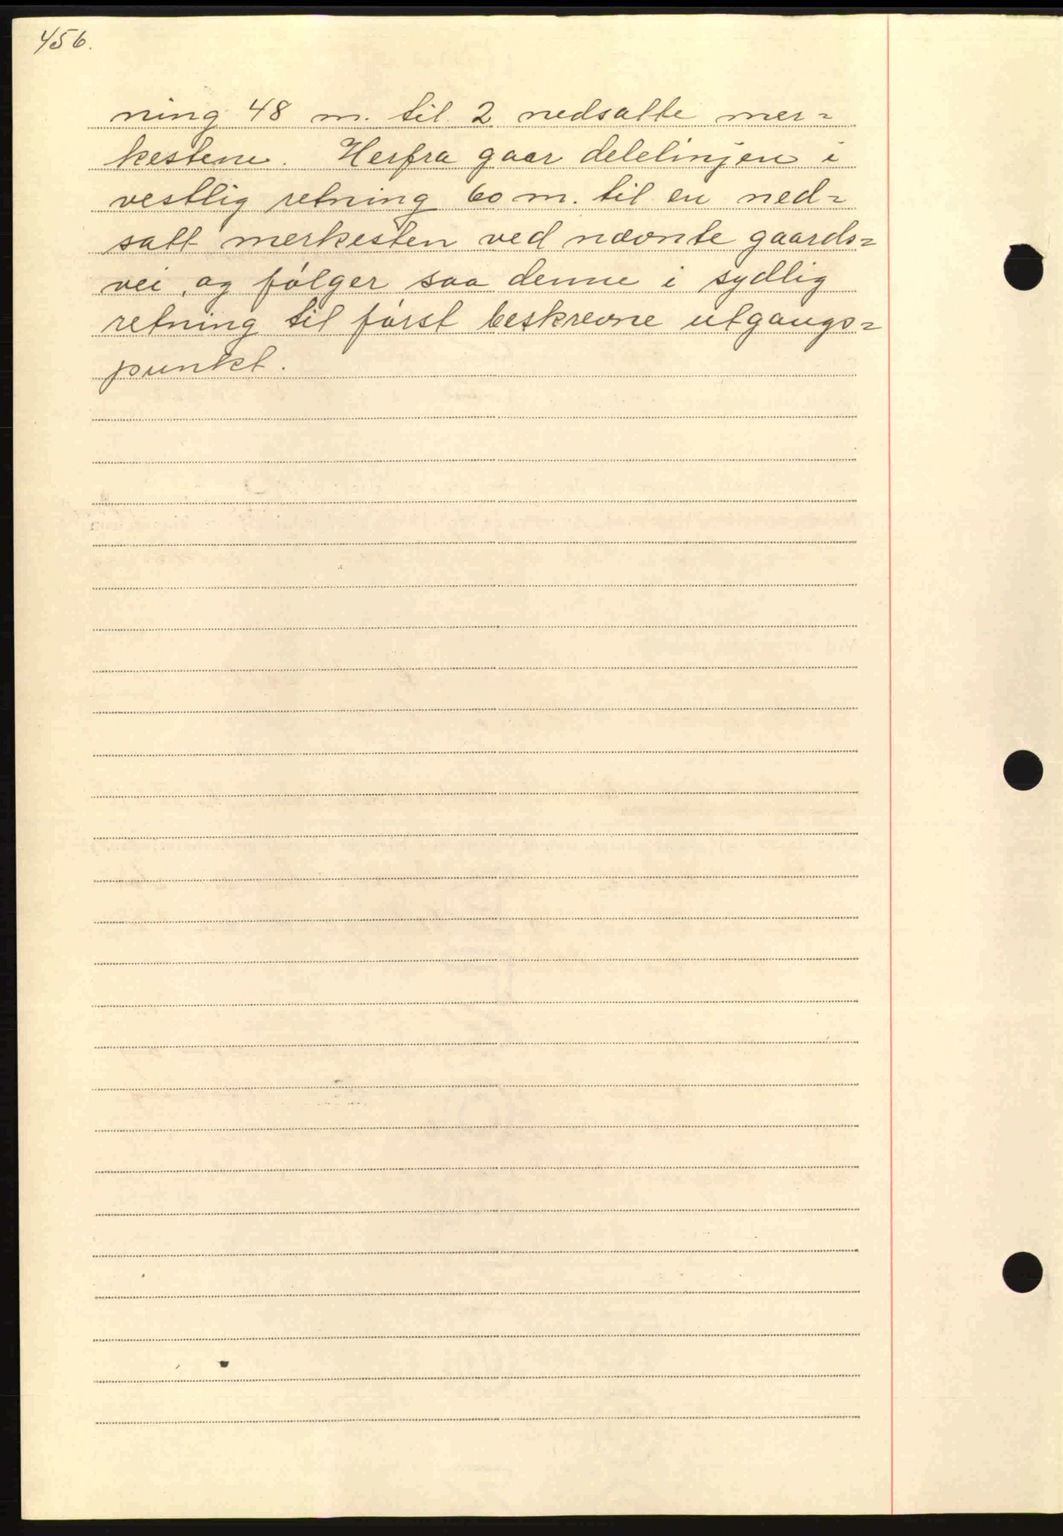 456.
ning 48 m. til 2 nedsatte mer=
kestene. Herfra gaar delelinjen i
vestlig retning 60 m. til en ned=
satt merkesten ved nævnte gaards=
vei, og følger saa denne i sydlig
retning til først beskrevne utgangs=
punkt.